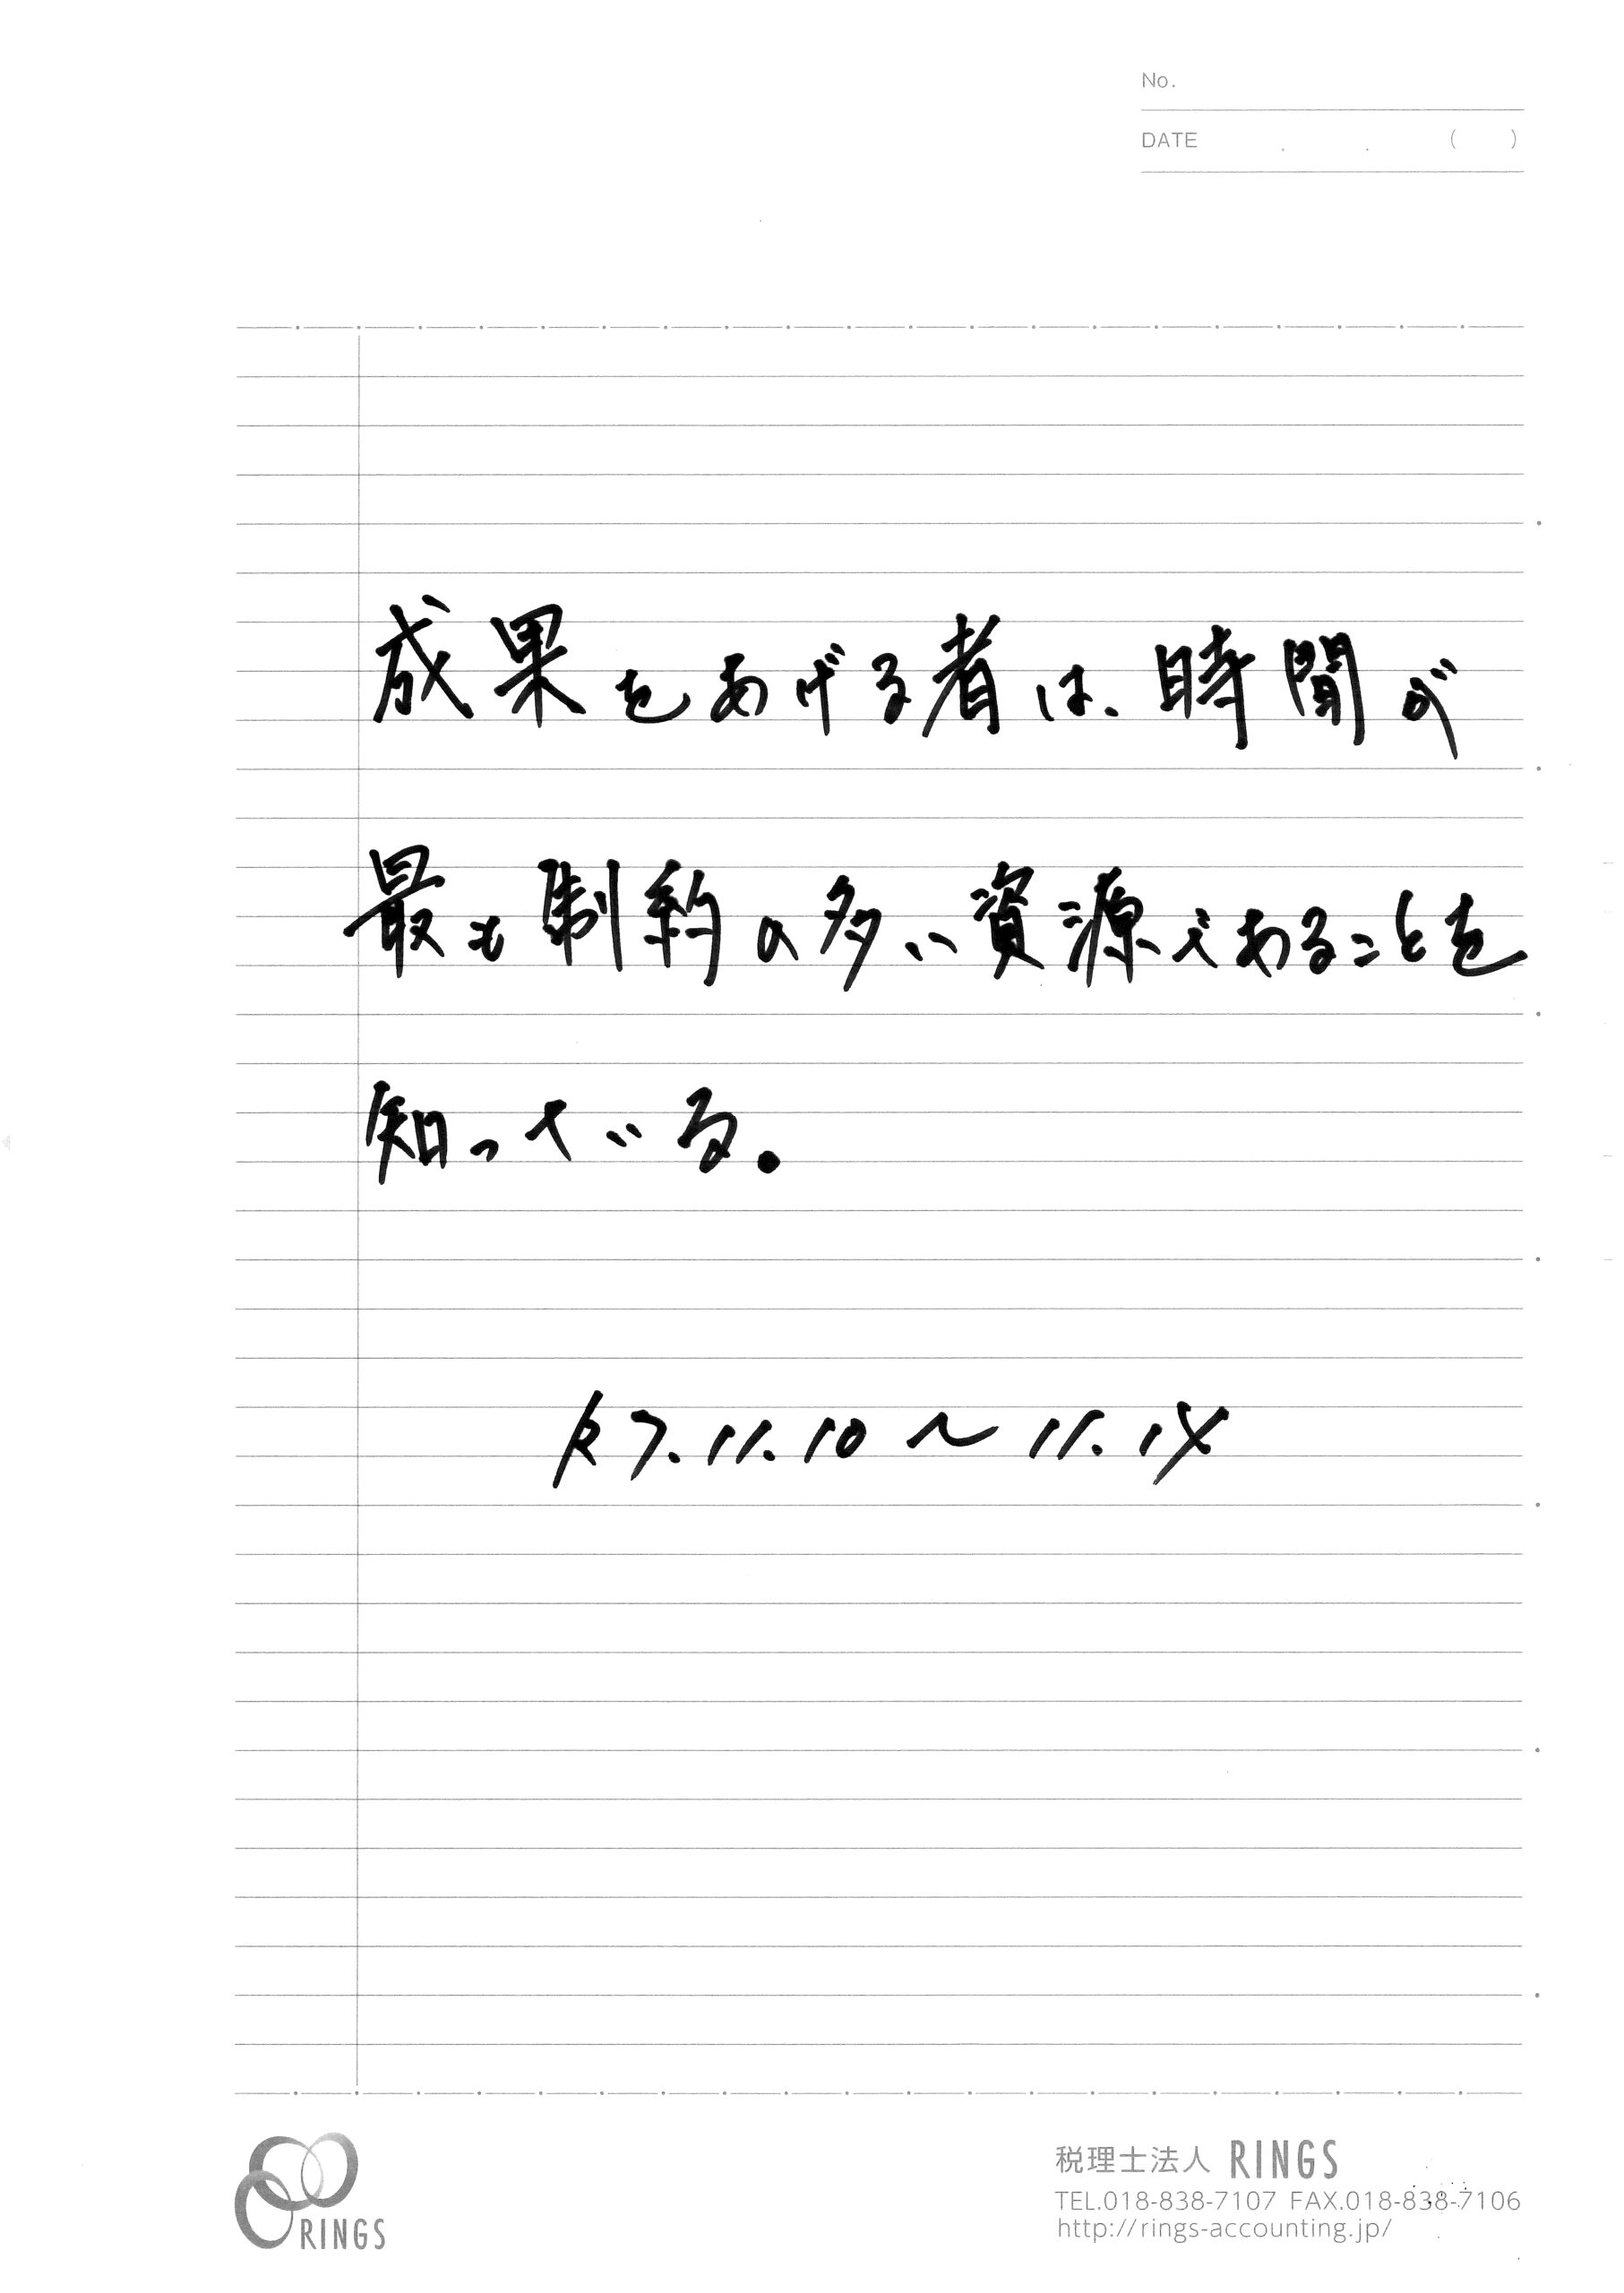 No.
DATE . . ( )
成果をあげる者は、時間が
最も制約の多い資源であることを
知っている。
R7.11.10〜11.14
RINGS
税理士法人 RINGS
TEL.018-838-7107 FAX.018-838-7106
http://rings-accounting.jp/